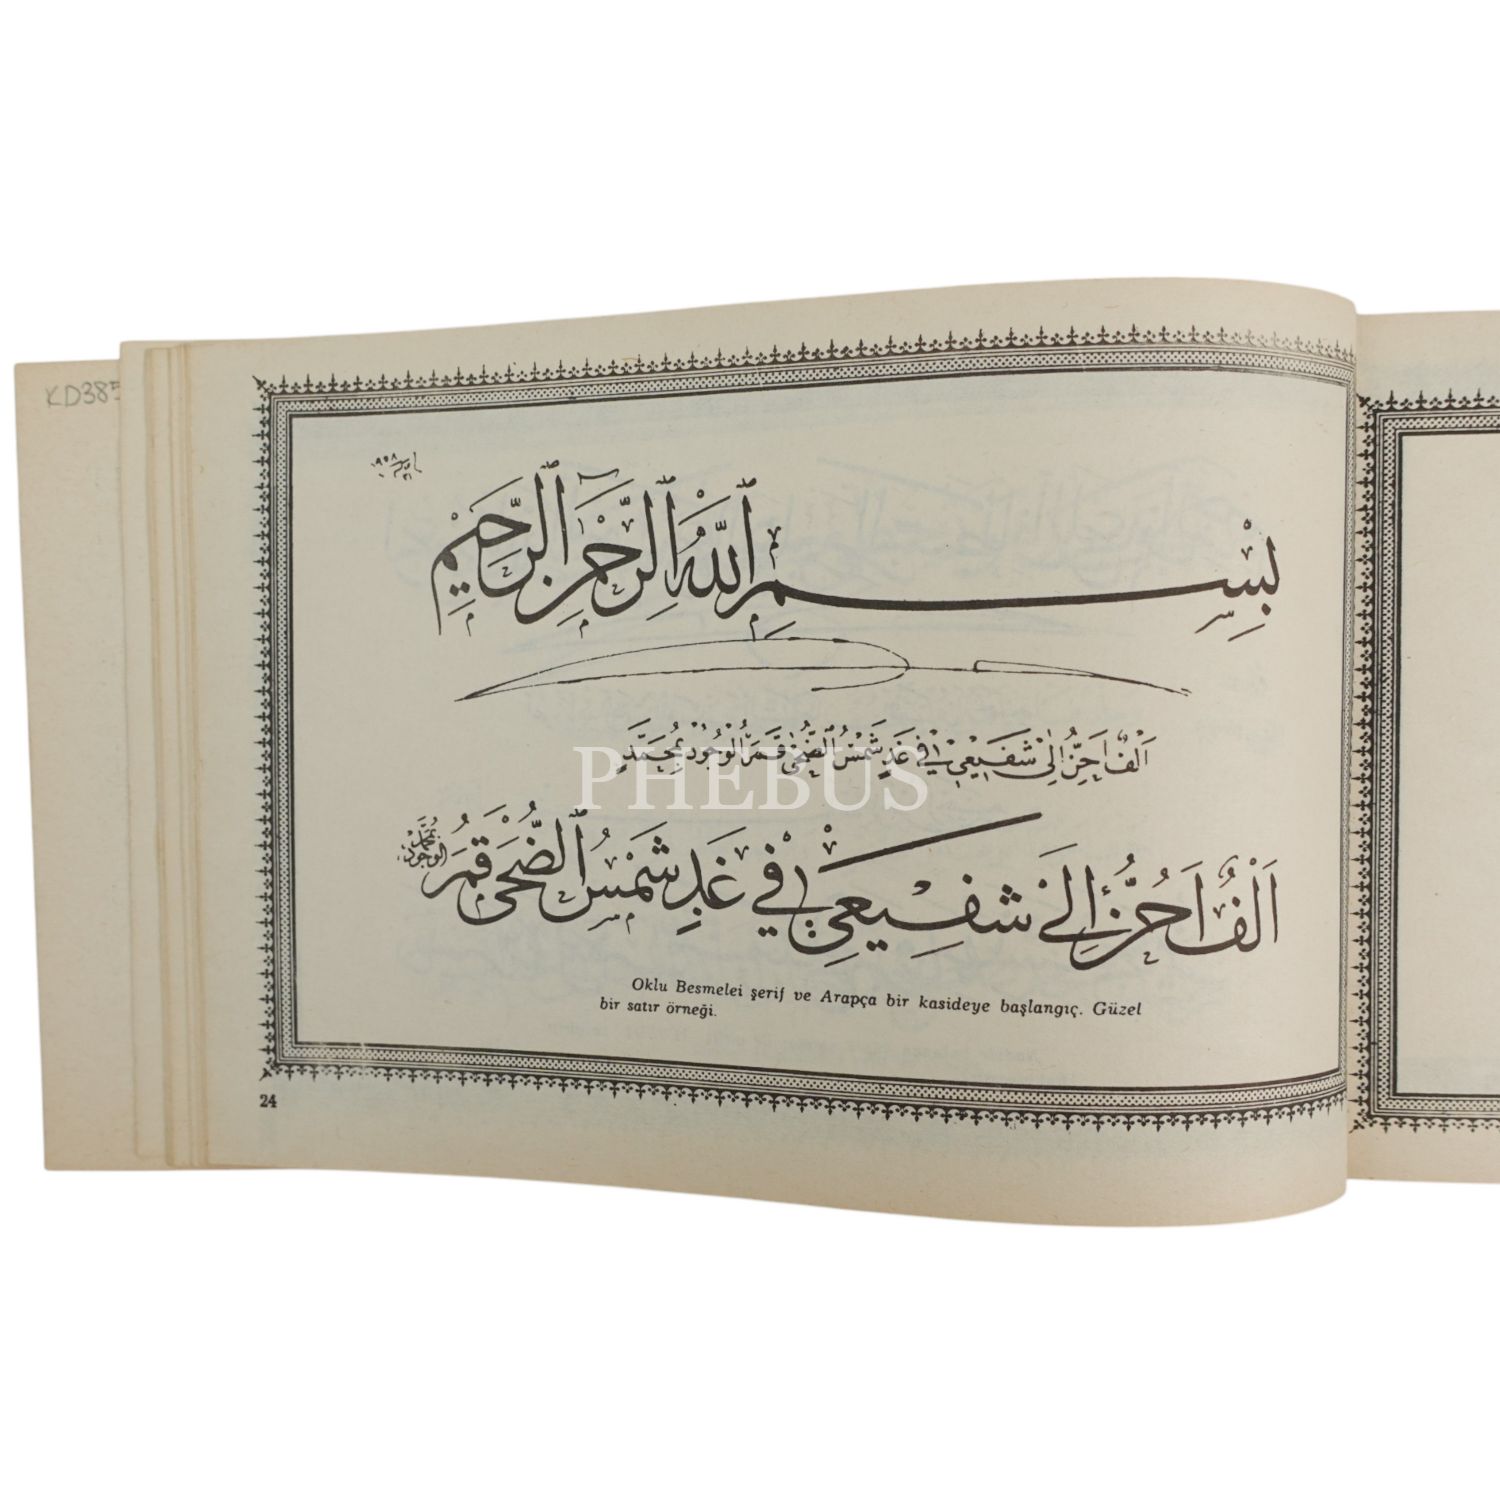 KD385
١٩٥٨
بِسْمِ اللّٰهِ الرَّحْمٰنِ الرَّحِيمِ
اَلِفٌ اَحِنُّ اِلٰى شَفِيعِي فِي غَدٍ شَمْسُ الضُّحٰى قَمَرُ الْوُجُودِ مُحَمَّدٍ
PHEBUS
اَلِفٌ اَحِنُّ اِلٰى شَفِيعِي فِي غَدٍ شَمْسُ الضُّحٰى قَمَرُ الْوُجُودِ مُحَمَّدٍ
Oklu Besmelei şerif ve Arapça bir kasideye başlangıç. Güzel
bir satır örneği.
24